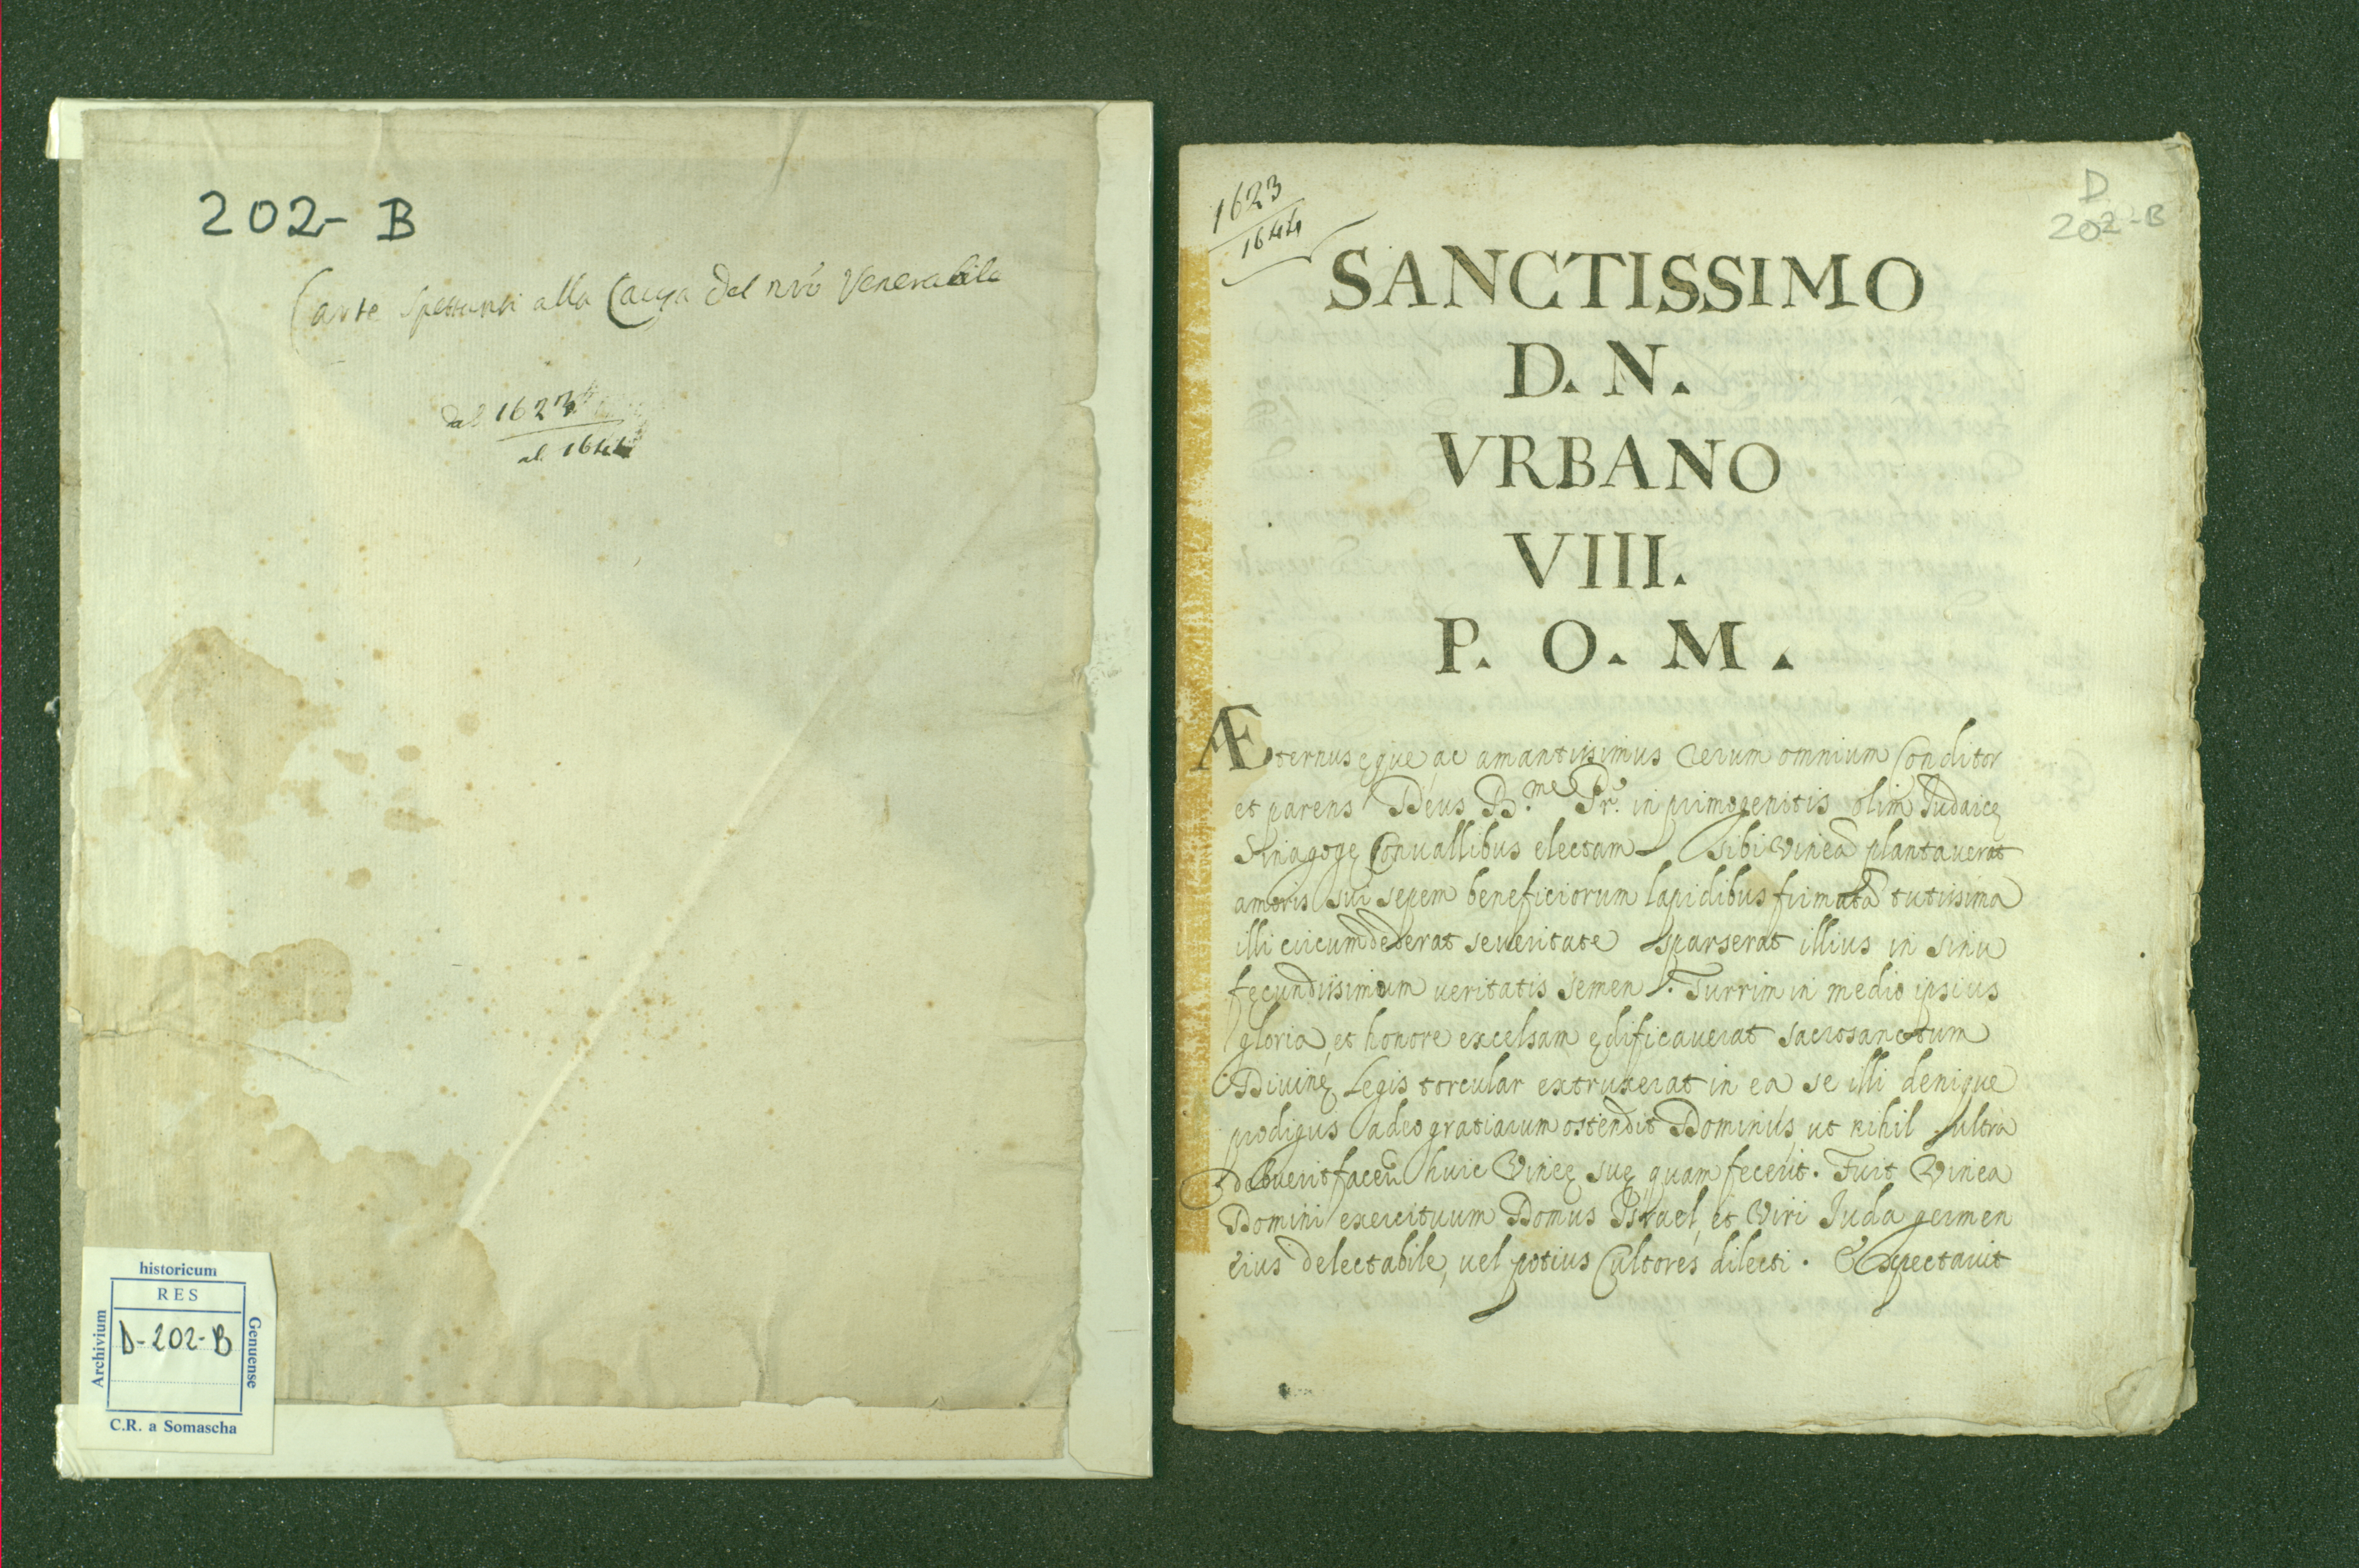 202- B
Carte spettanti alla Causa del nro Venerabile
dal 1623
al 1644
historicum
RES
Archivium
D-202-B
Genuense
C.R. a Somascha
1623
1644
D
202-B
SANCTISSIMO
D. N.
VRBANO
VIII.
P. O. M.
Æternus ęque, ac amantissimus rerum omnium Conditor
et parens Deus B.me Pr. in primogenitis olim Iudaicę
Sinagogę Conuallibus electam sibi vineã plantauerat
amoris sui sepem beneficiorum lapidibus firmatã tutissima
illi circumdederat seueritate sparserat illius in sinu
fecundissimum ueritatis semen. Turrim in medio ipsius
gloria, et honore excelsam ędificauerat sacrosanctum
Diuinę Legis torcular extruxerat in ea se illi denique
prodigus adeo gratiarum ostendit Dominus, ut nihil ultra
debuerit facerẽ huic Vinęę suę, quam fecerit. Fuit Vinea
Domini exercituum Domus Israel, et Viri Iuda germen
eius delectabile, uel potius Cultores dilecti. Expectauit